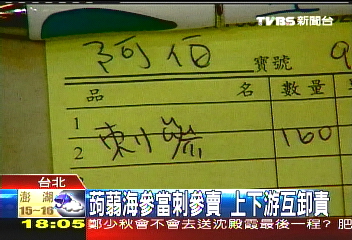 TVBS新聞台
阿伯
寶號
品名 數量
1
2 東小參 160
台北
澎湖
15-16
蒟蒻海參當刺參賣 上下游互卸責
18:05 鄭少秋會不會去送沈殿霞最後一程? 肥